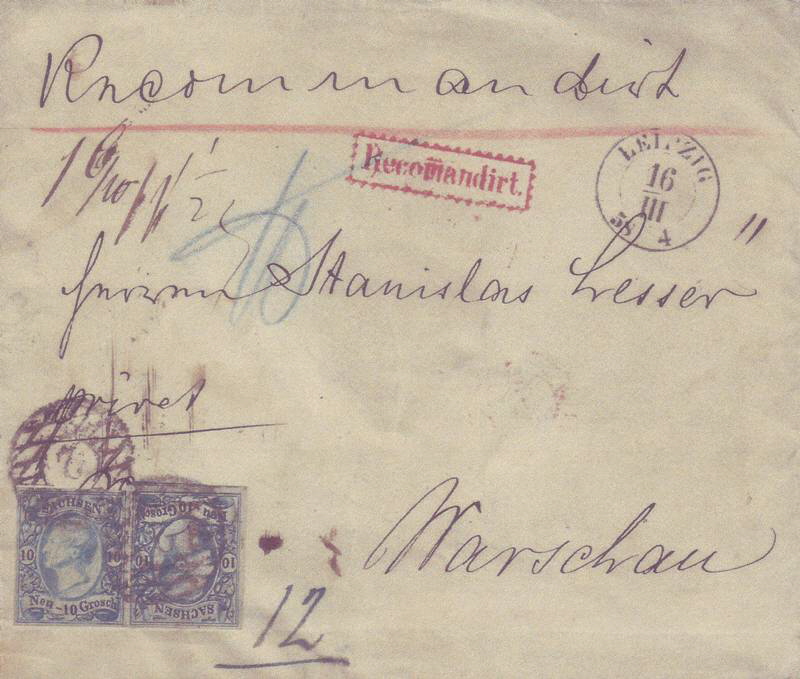 Recommandirt
Recomandirt.
LEIPZIG
16
III
58 4
1 6/10
1/2
Herrn Stanislas Lesser
privat
Warschau
SACHSEN
10 10
Neu-10 Grosch
Neu-10 Grosch
10 10
SACHSEN
12